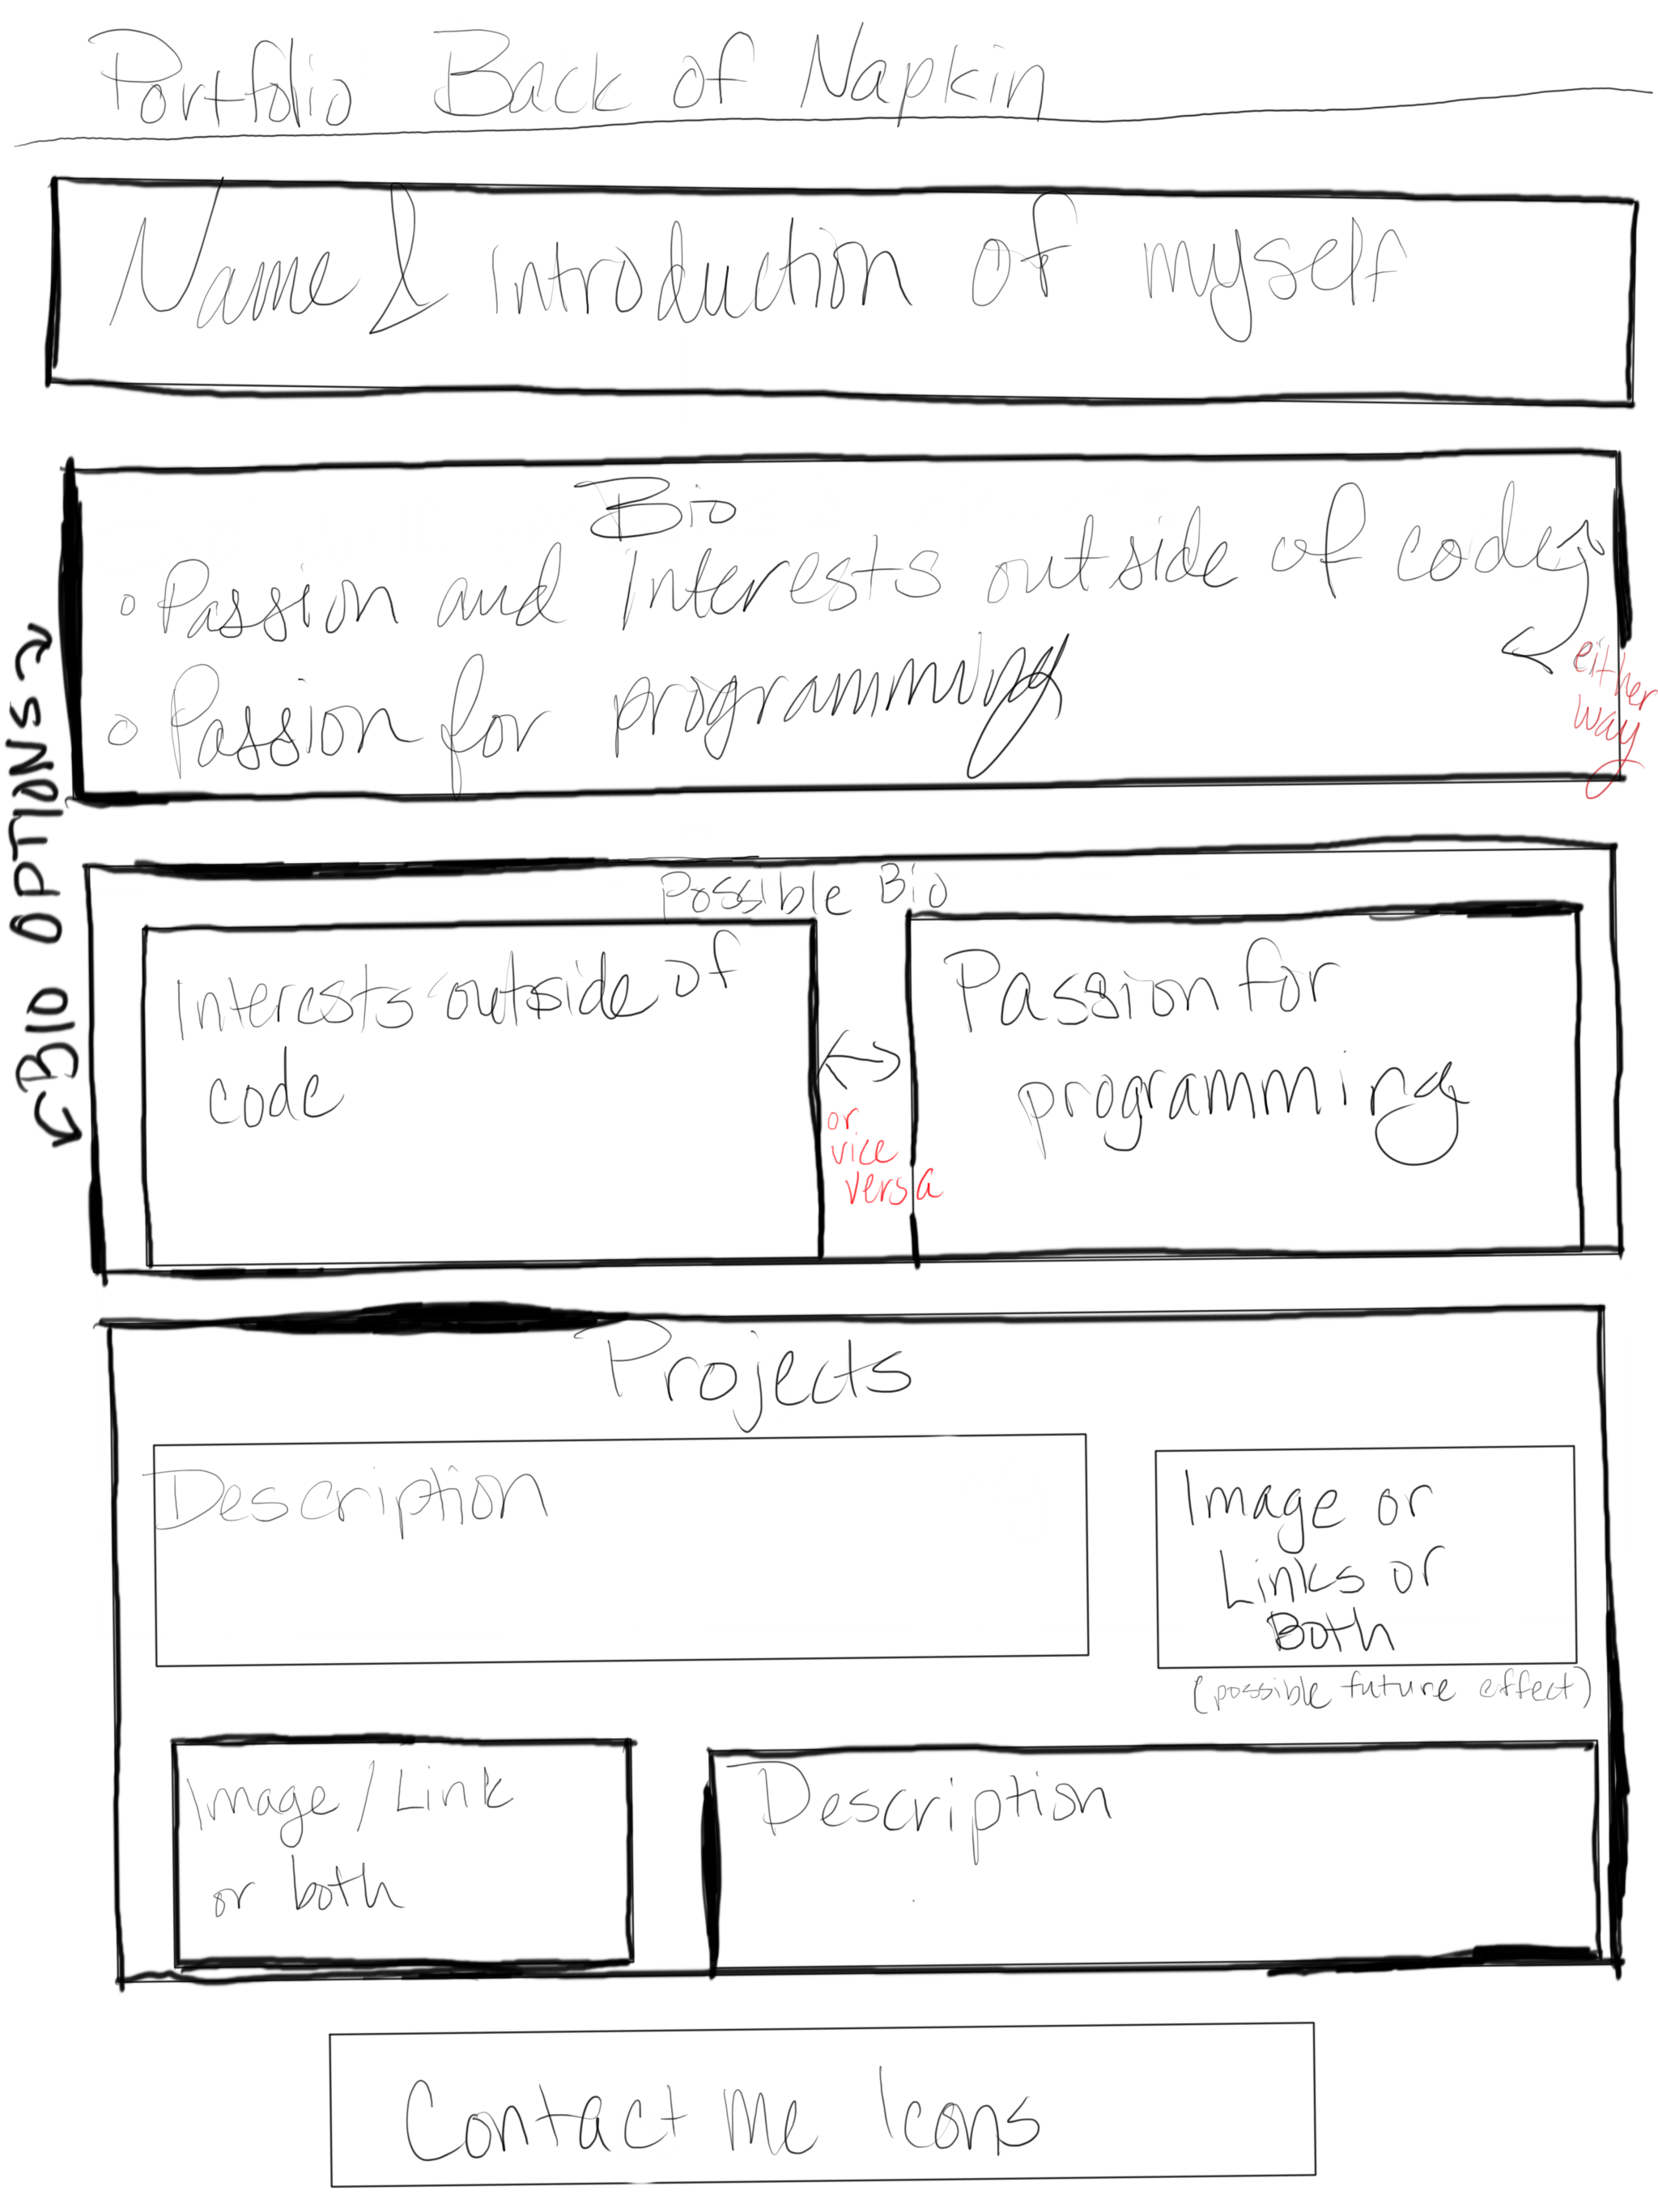 Portfolio Back of Napkin
Name & introduction of myself
BIO OPTIONS
Bio
Passion and Interests outside of code
Passion for programming
either
way
Possible Bio
Interests outside of
code
or
vice
versa
Passion for
programming
Projects
Description
Image or
Links or
Both
(possible future effect)
Image / Link
or both
Description
Contact Me Icons